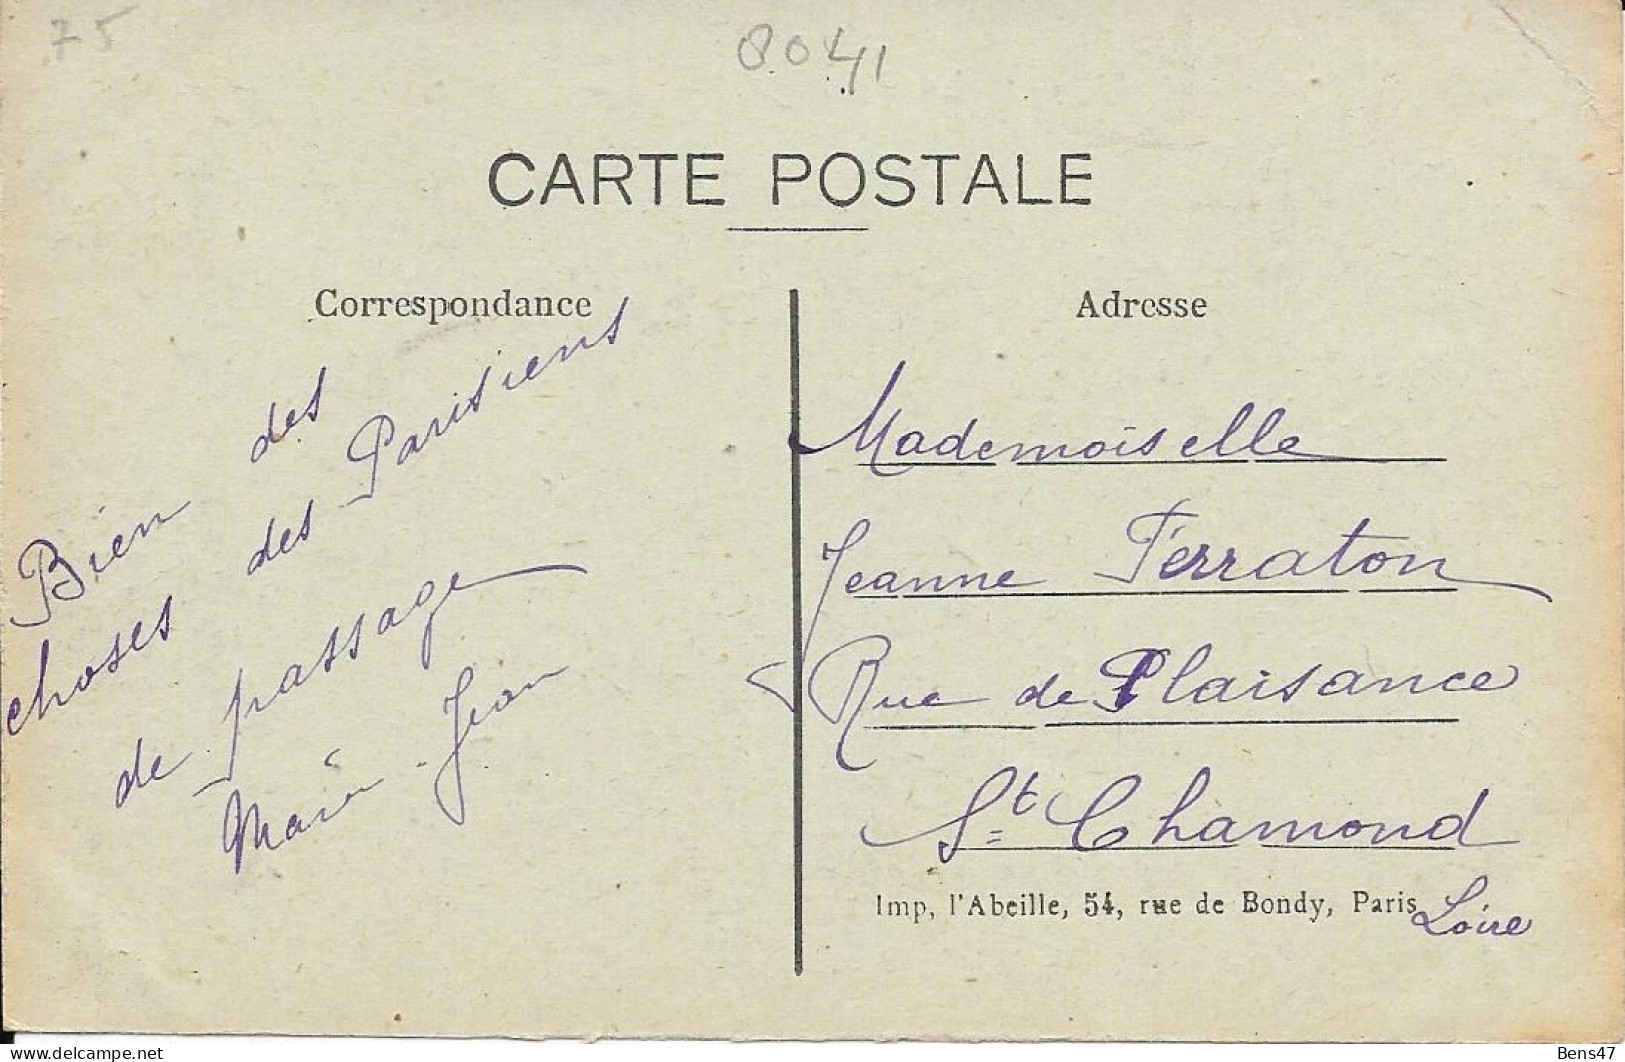 75
8041
CARTE POSTALE
Correspondance
Bien des
choses des Parisiens
de passage
Marie-Jean
Adresse
Mademoiselle
Jeanne Ferraton
Rue de Plaisance
St Chamond
Loire
Imp, l'Abeille, 54, rue de Bondy, Paris
Bens47
delcampe.net